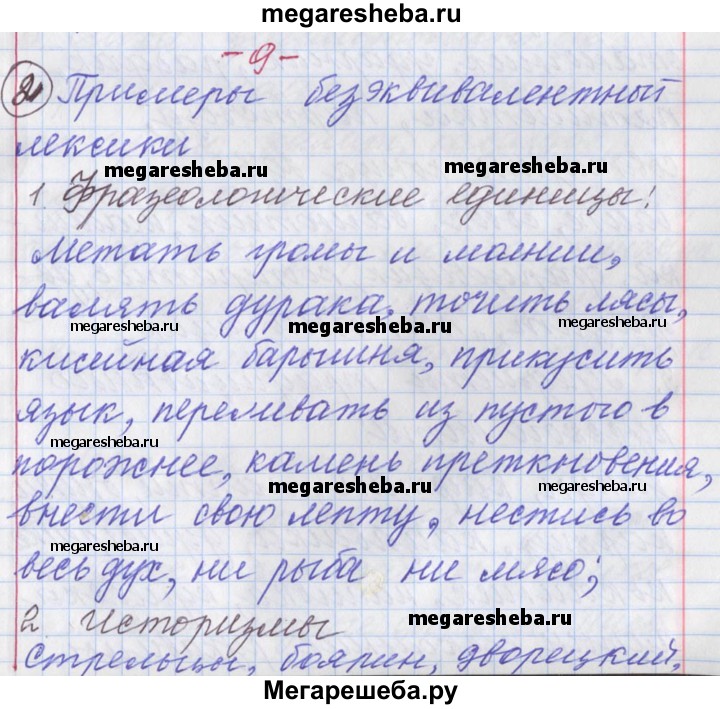 megaresheba.ru
- 9 -
21 Примеры безэквивалентный
лексики
megaresheba.ru megaresheba.ru
1 Фразеологические единицы:
Метать громы и молнии,
валять дурака, точить лясы,
megaresheba.ru megaresheba.ru megaresheba.ru
кисейная барышня, прикусить
язык, переливать из пустого в
megaresheba.ru megaresheba.ru
порожнее, камень преткновения,
megaresheba.ru megaresheba.ru
внести свою лепту, нестись во
megaresheba.ru
весь дух, ни рыба ни мясо;
2 Историзмы megaresheba.ru
Стрельцы, боярин, дворецкий,
Мегарешеба.ру